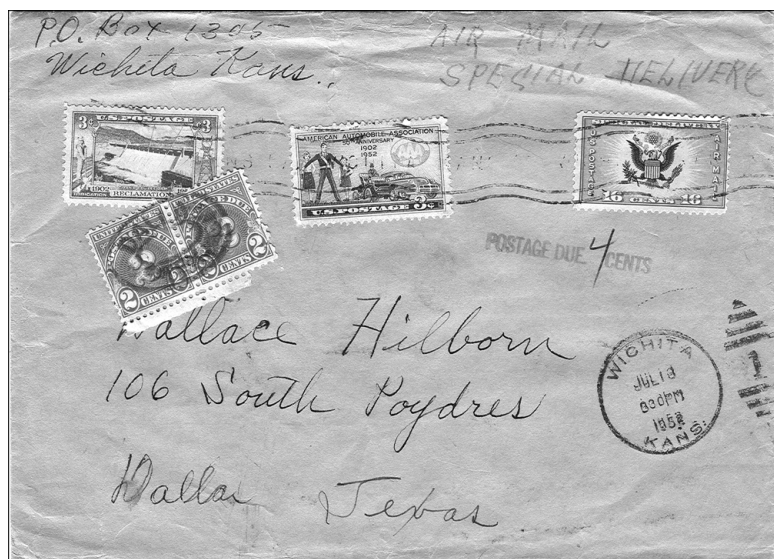 P.O. Box 1305
Wichita Kans.,
AIR MAIL
SPECIAL DELIVERY
3¢ U.S. POSTAGE 3
1902 RECLAMATION
AMERICAN AUTOMOBILE ASSOCIATION
50TH ANNIVERSARY
1902
1952
AAA
U.S. POSTAGE 3¢
SPECIAL DELIVERY
U.S. POSTAGE
AIR MAIL
16 CENTS 16
POSTAGE DUE
POSTAGE DUE
2 CENTS
CENTS 2
POSTAGE DUE 4 CENTS
Wallace Hilborn
106 South Poydres
Dallas Texas
WICHITA
JUL 18
830 PM
1952
KANS.
1